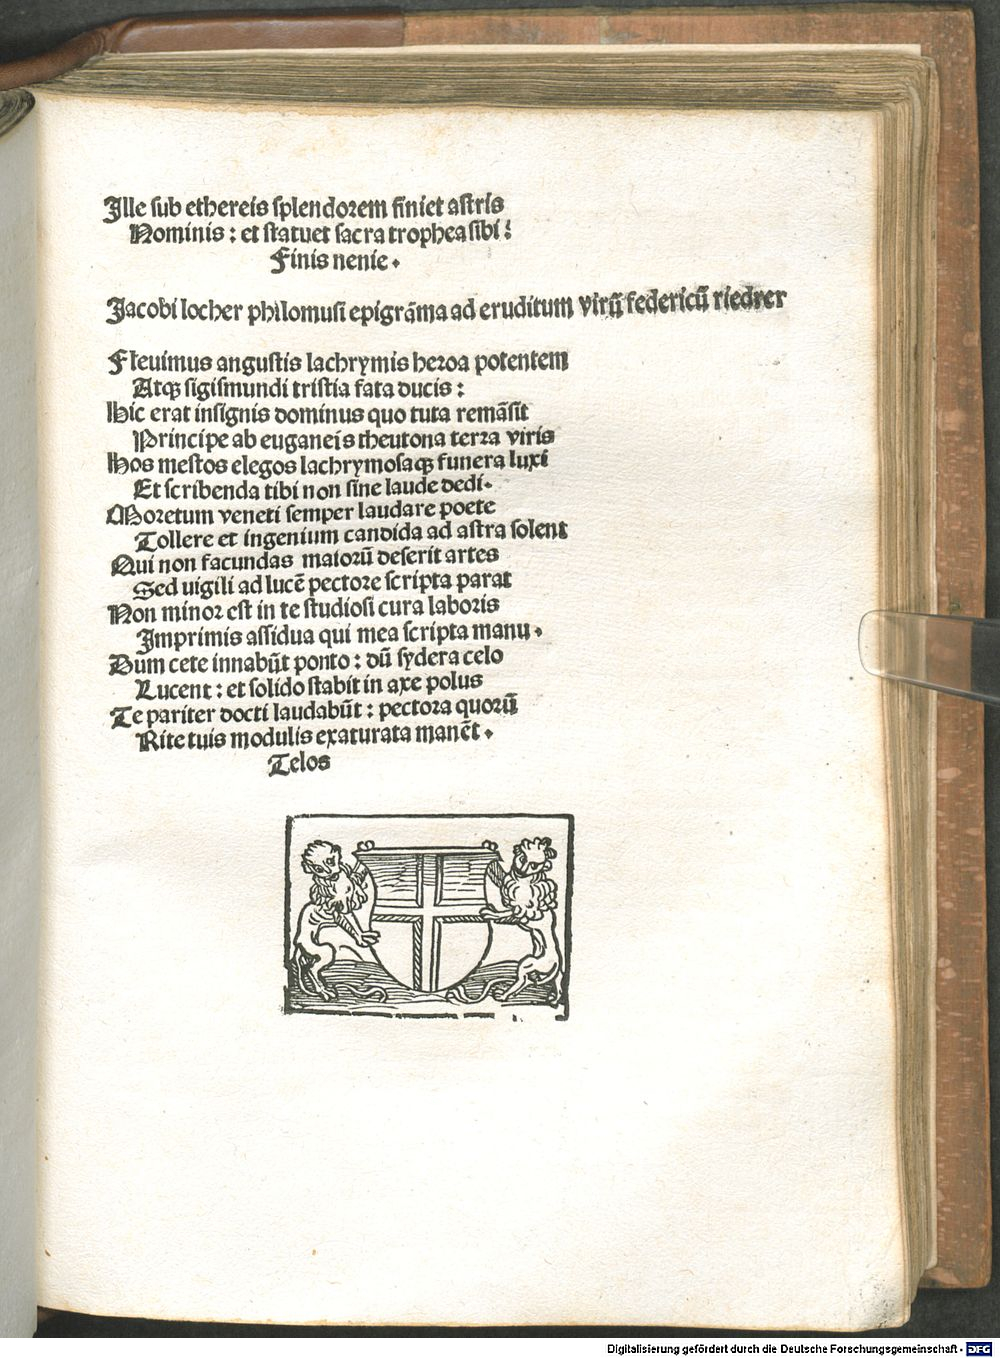 Ille sub ethereis splendorem finiet astris
Nominis : et statuet sacra trophea sibi :
Finis nenie .
Jacobi locher philomusi epigrāma ad eruditum virū federicū riedrer
Fleuimus angustis lachrymis heroa potentem
Atqꝫ sigismundi tristia fata ducis :
Hic erat insignis dominus quo tuta remāsit
Principe ab euganeis theutona terra viris
Hos mestos elegos lachrymosaqꝫ funera luxi
Et scribenda tibi non sine laude dedi .
Moretum veneti semper laudare poete
Tollere et ingenium candida ad astra solent
Qui non facundas maiorū deserit artes
Sed uigili ad lucē pectore scripta parat
Non minor est in te studiosi cura laboris
Imprimis assidua qui mea scripta manu .
Dum cete innabūt ponto : dū sydera celo
Lucent : et solido stabit in axe polus
Te pariter docti laudabūt : pectora quorū
Rite tuis modulis exaturata manēt .
Telos
Digitalisierung gefördert durch die Deutsche Forschungsgemeinschaft - DFG